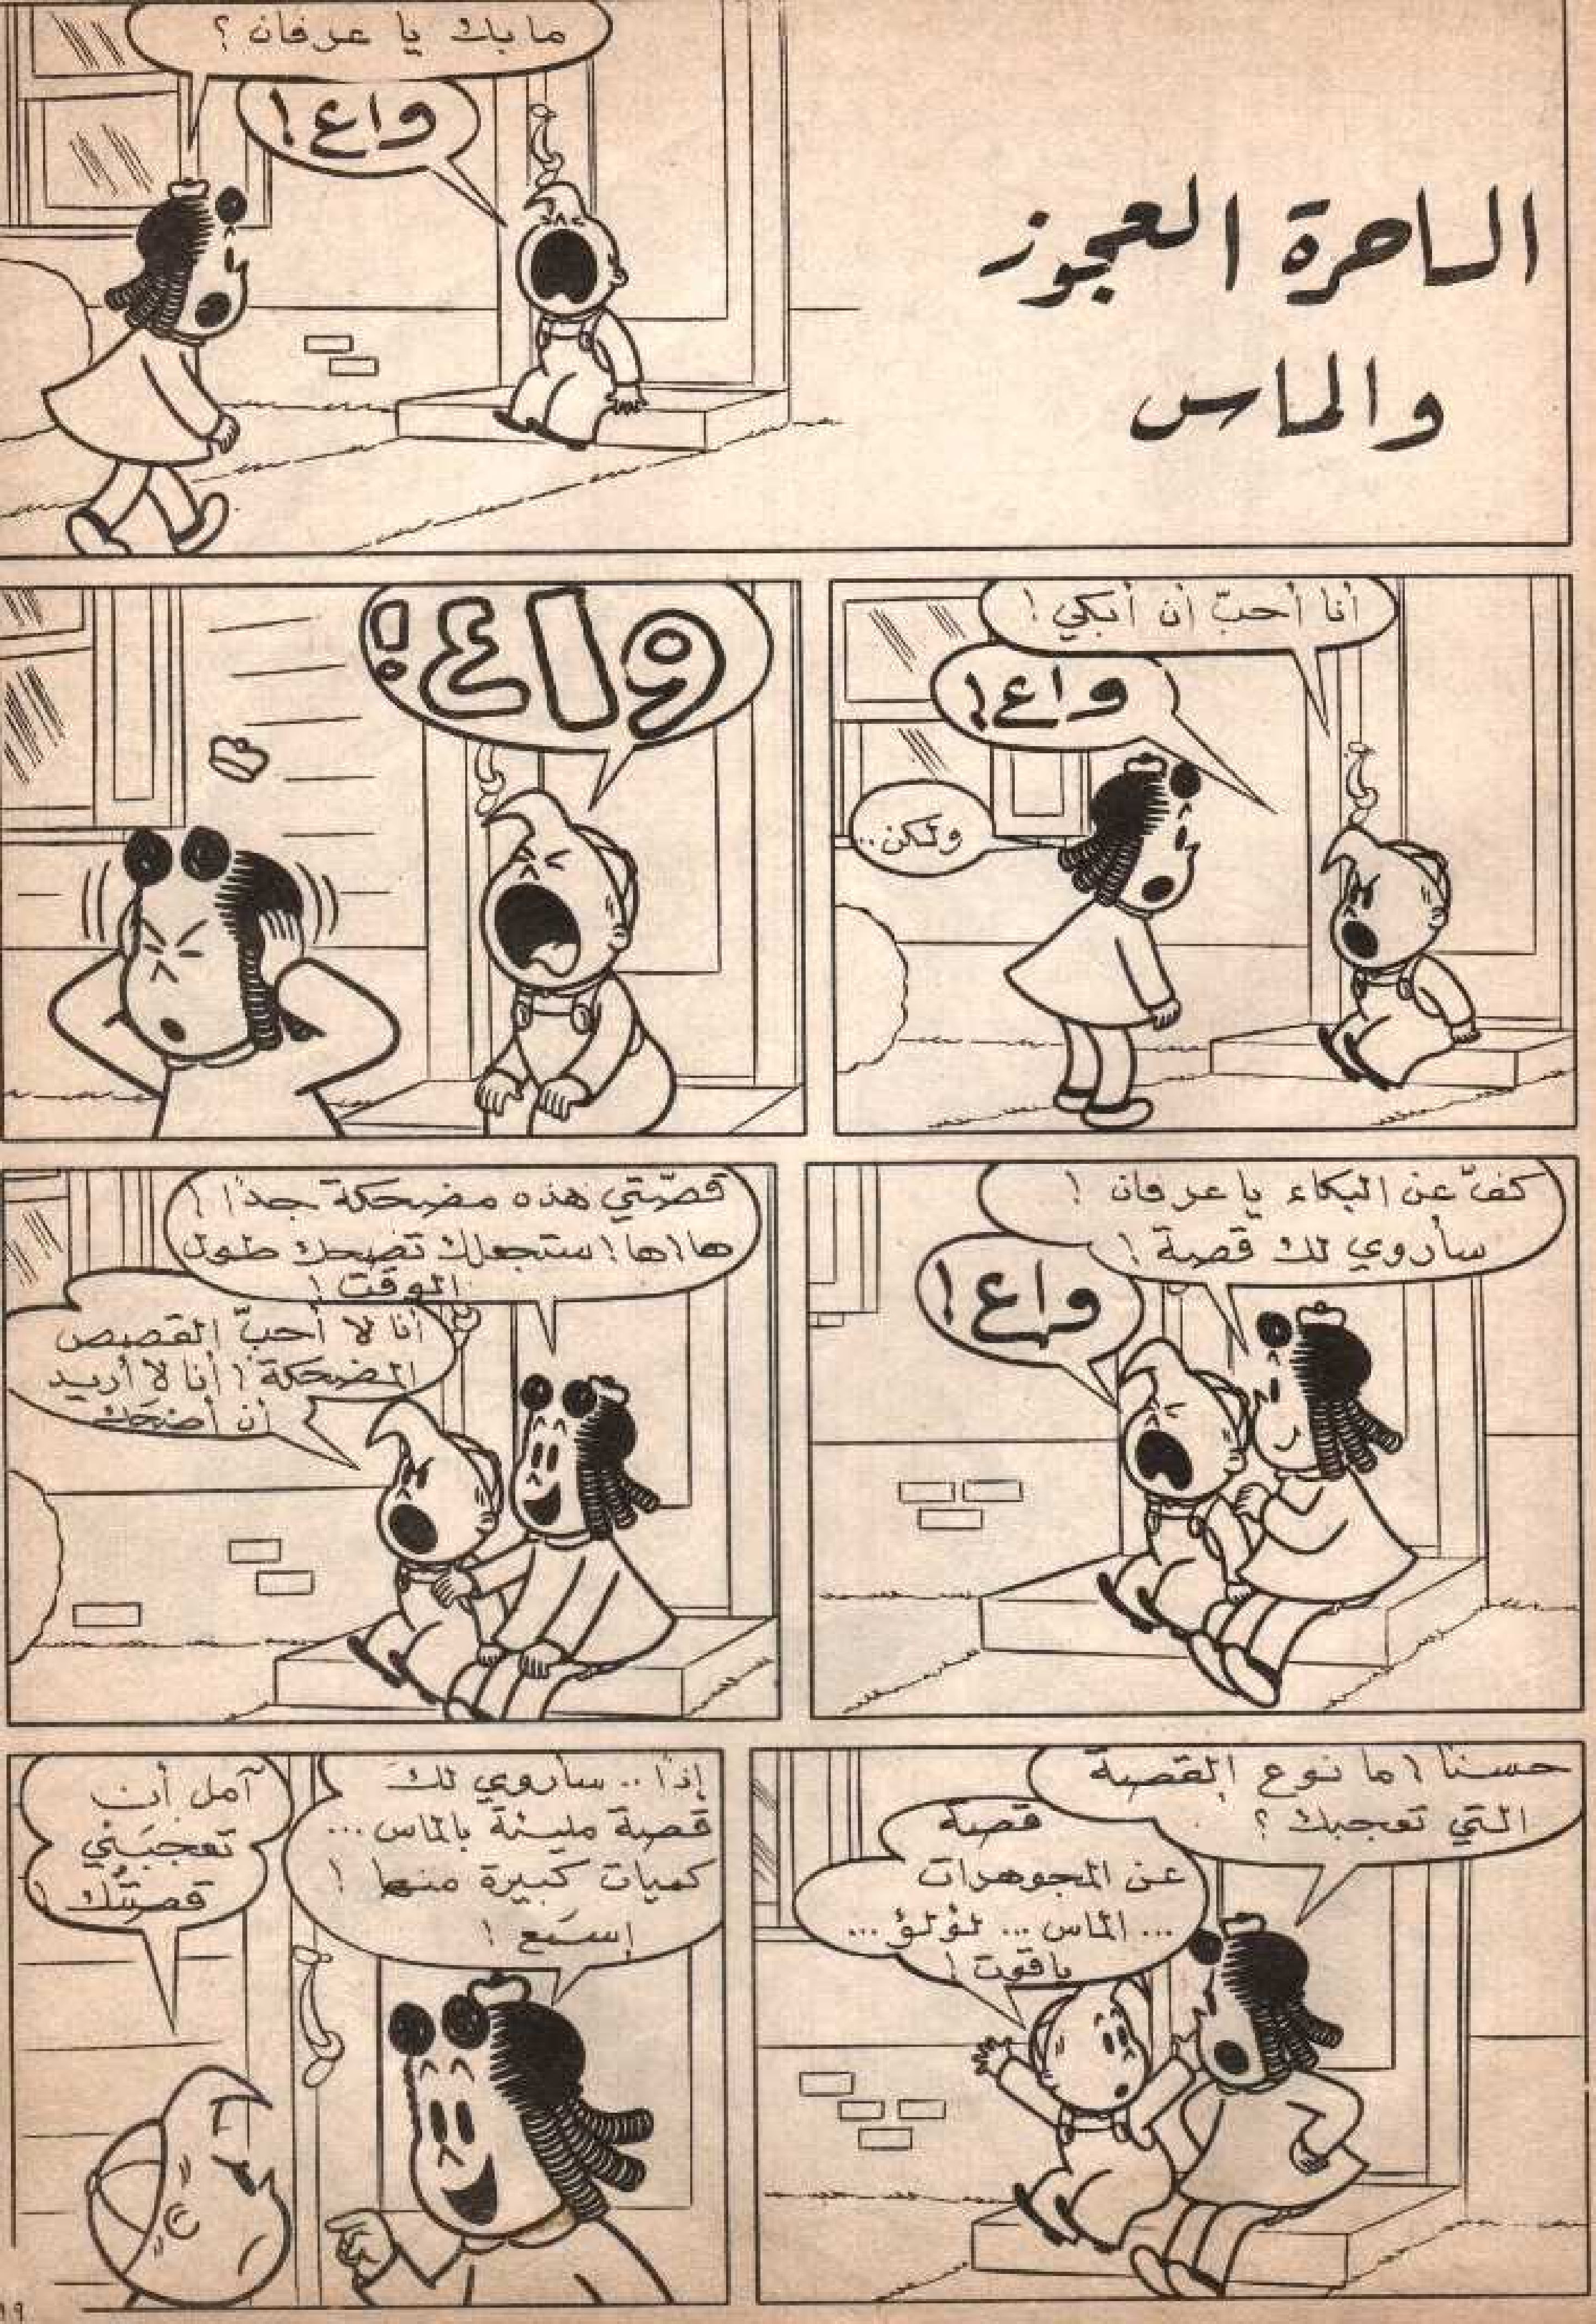 الساحرة العجوز
والماس
ما بك يا عرفان ؟
واع !
أنا أحبّ أن أبكي !
واع !
ولكن ..
واع !
كفّ عن البكاء يا عرفان !
سأروي لك قصة !
واع !
قصّتي هذه مضحكة جدًا !
ها ! ها ! ستجعلك تضحك طول
الوقت !
أنا لا أحبّ القصص
المضحكة ! أنا لا أريد
أن أضحَك
حسنًا ! ما نوع القصة
التي تعجبك ؟
قصة
عن المجوهرات
... الماس ... لؤلؤ ...
ياقوت !
إذًا .. سأروي لكَ
قصة مليئة بالماس ...
كميات كبيرة منها !
إسمَع !
آمل أن
تعجبَني
قصتُك !
١٩